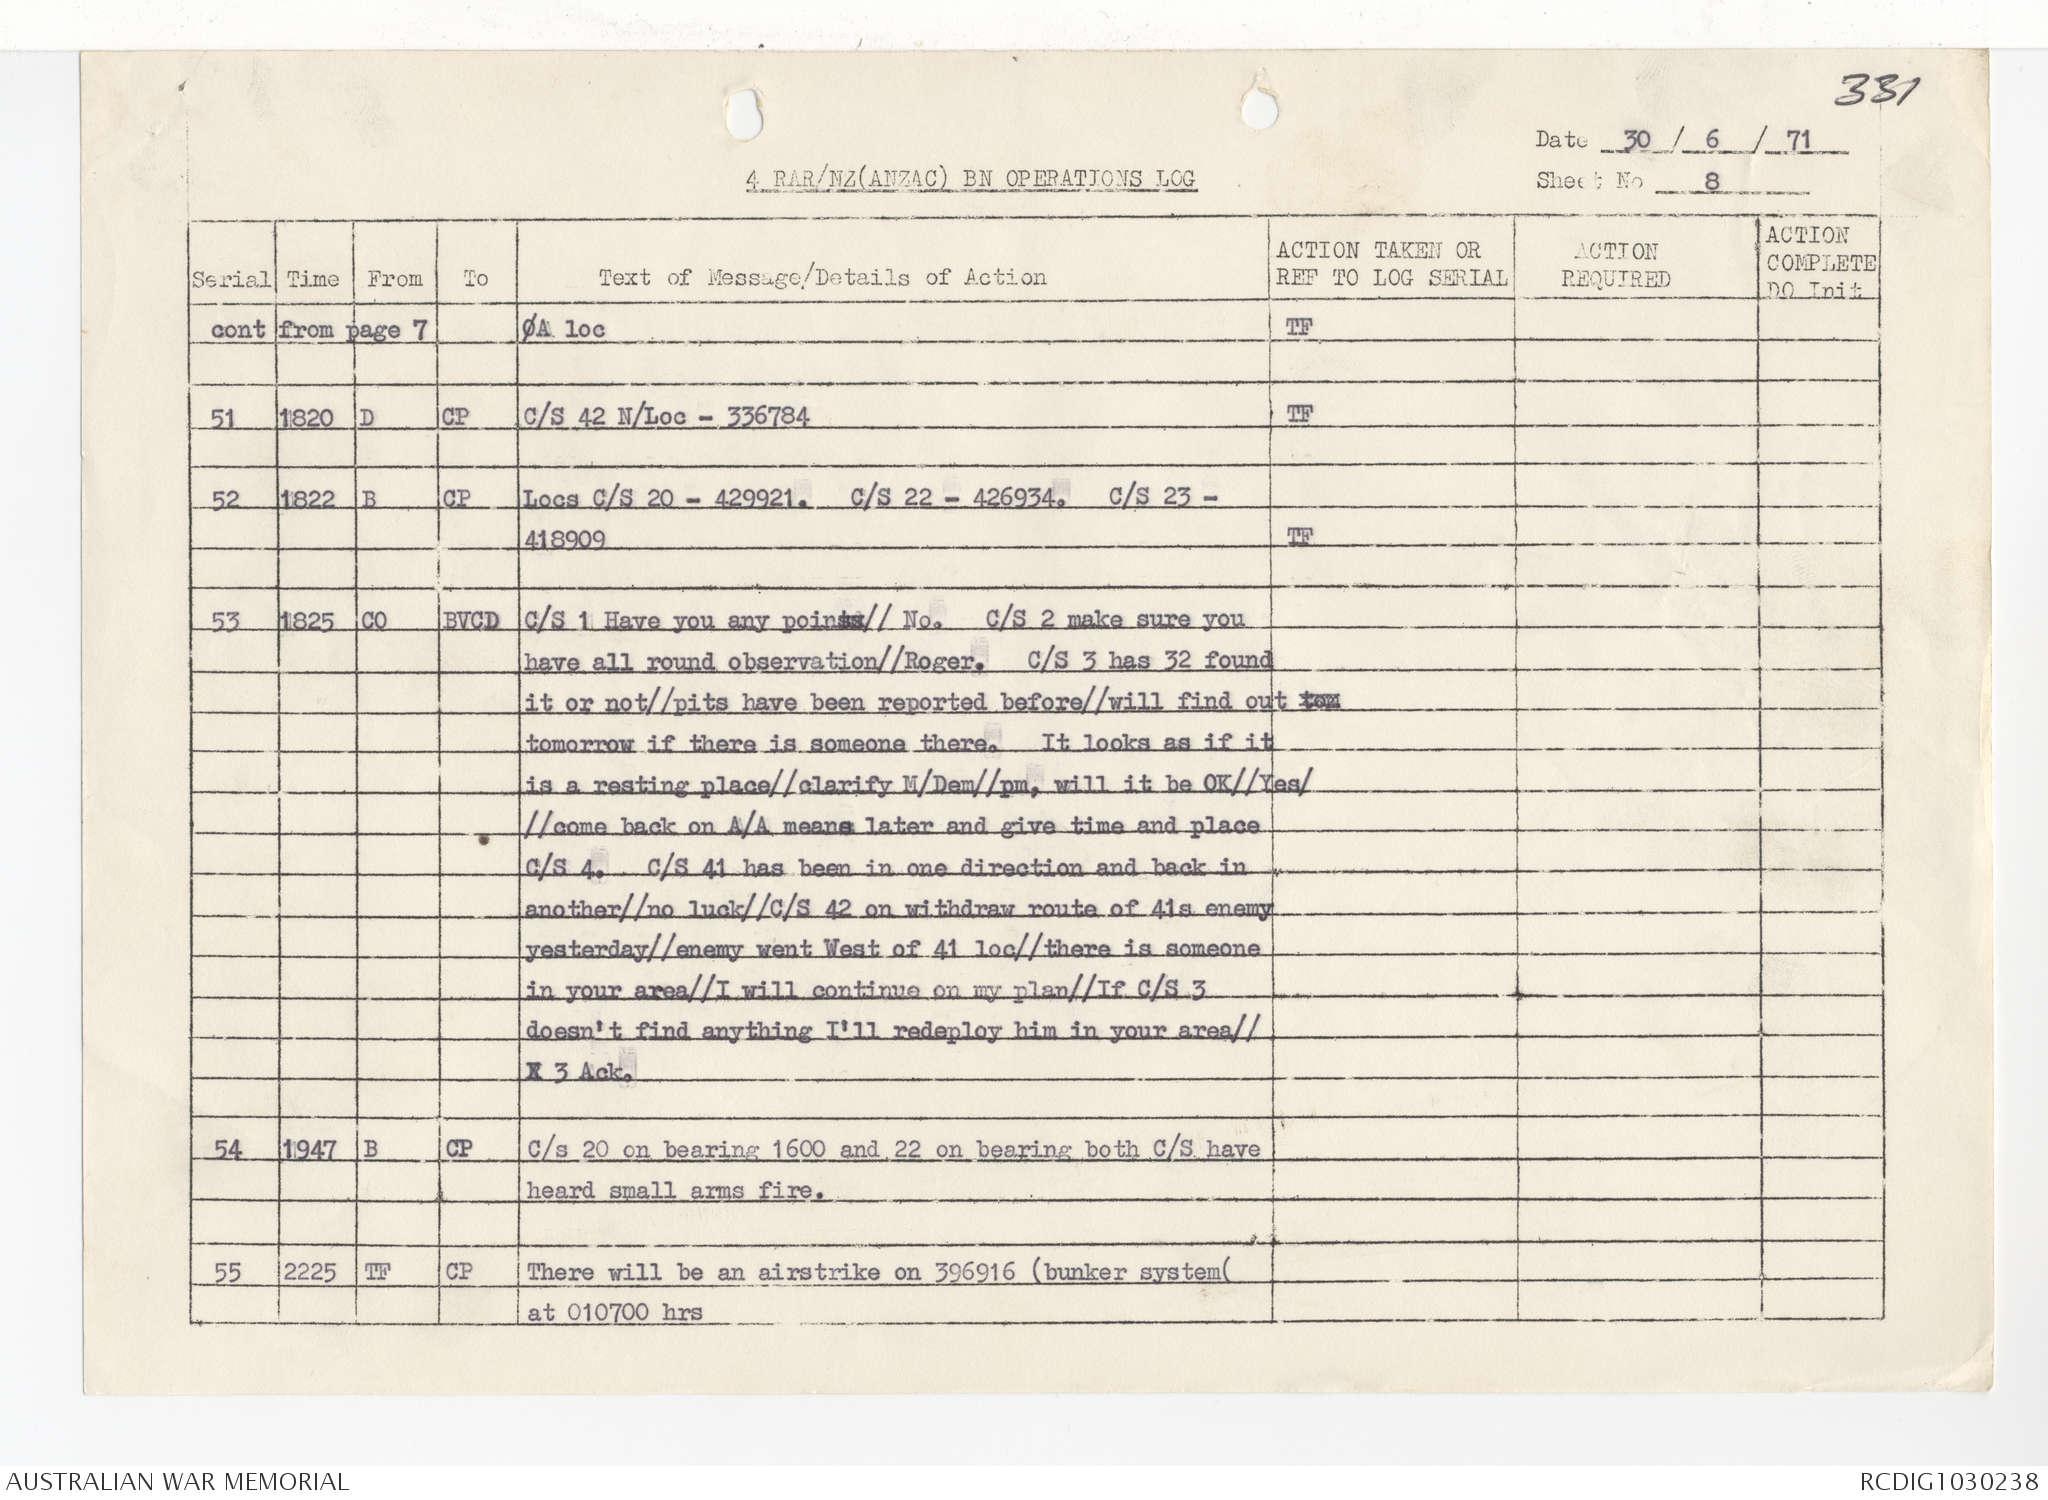 331
Date 30 / 6 / 71
4 RAR/NZ(ANZAC) BN OPERATIONS LOG
Sheet No 8
Serial Time From To Text of Message/Details of Action ACTION TAKEN OR REF TO LOG SERIAL ACTION REQUIRED ACTION COMPLETE DO Init
cont from page 7 ØA loc TF
51 1820 D CP C/S 42 N/Loc - 336784 TF
52 1822 B CP Locs C/S 20 - 429921. C/S 22 - 426934. C/S 23 -
418909 TF
53 1825 CO BVCD C/S 1 Have you any points// No. C/S 2 make sure you
have all round observation//Roger. C/S 3 has 32 found
it or not//pits have been reported before//will find out tom
tomorrow if there is someone there. It looks as if it
is a resting place//clarify M/Dem//pm, will it be OK//Yes/
//come back on A/A means later and give time and place
C/S 4. C/S 41 has been in one direction and back in
another//no luck//C/S 42 on withdraw route of 41s enemy
yesterday//enemy went West of 41 loc//there is someone
in your area//I will continue on my plan//If C/S 3
doesn't find anything I'll redeploy him in your area//
X 3 Ack.
54 1947 B CP C/s 20 on bearing 1600 and 22 on bearing both C/S have
heard small arms fire.
55 2225 TF CP There will be an airstrike on 396916 (bunker system(
at 010700 hrs
AUSTRALIAN WAR MEMORIAL RCDIG1030238